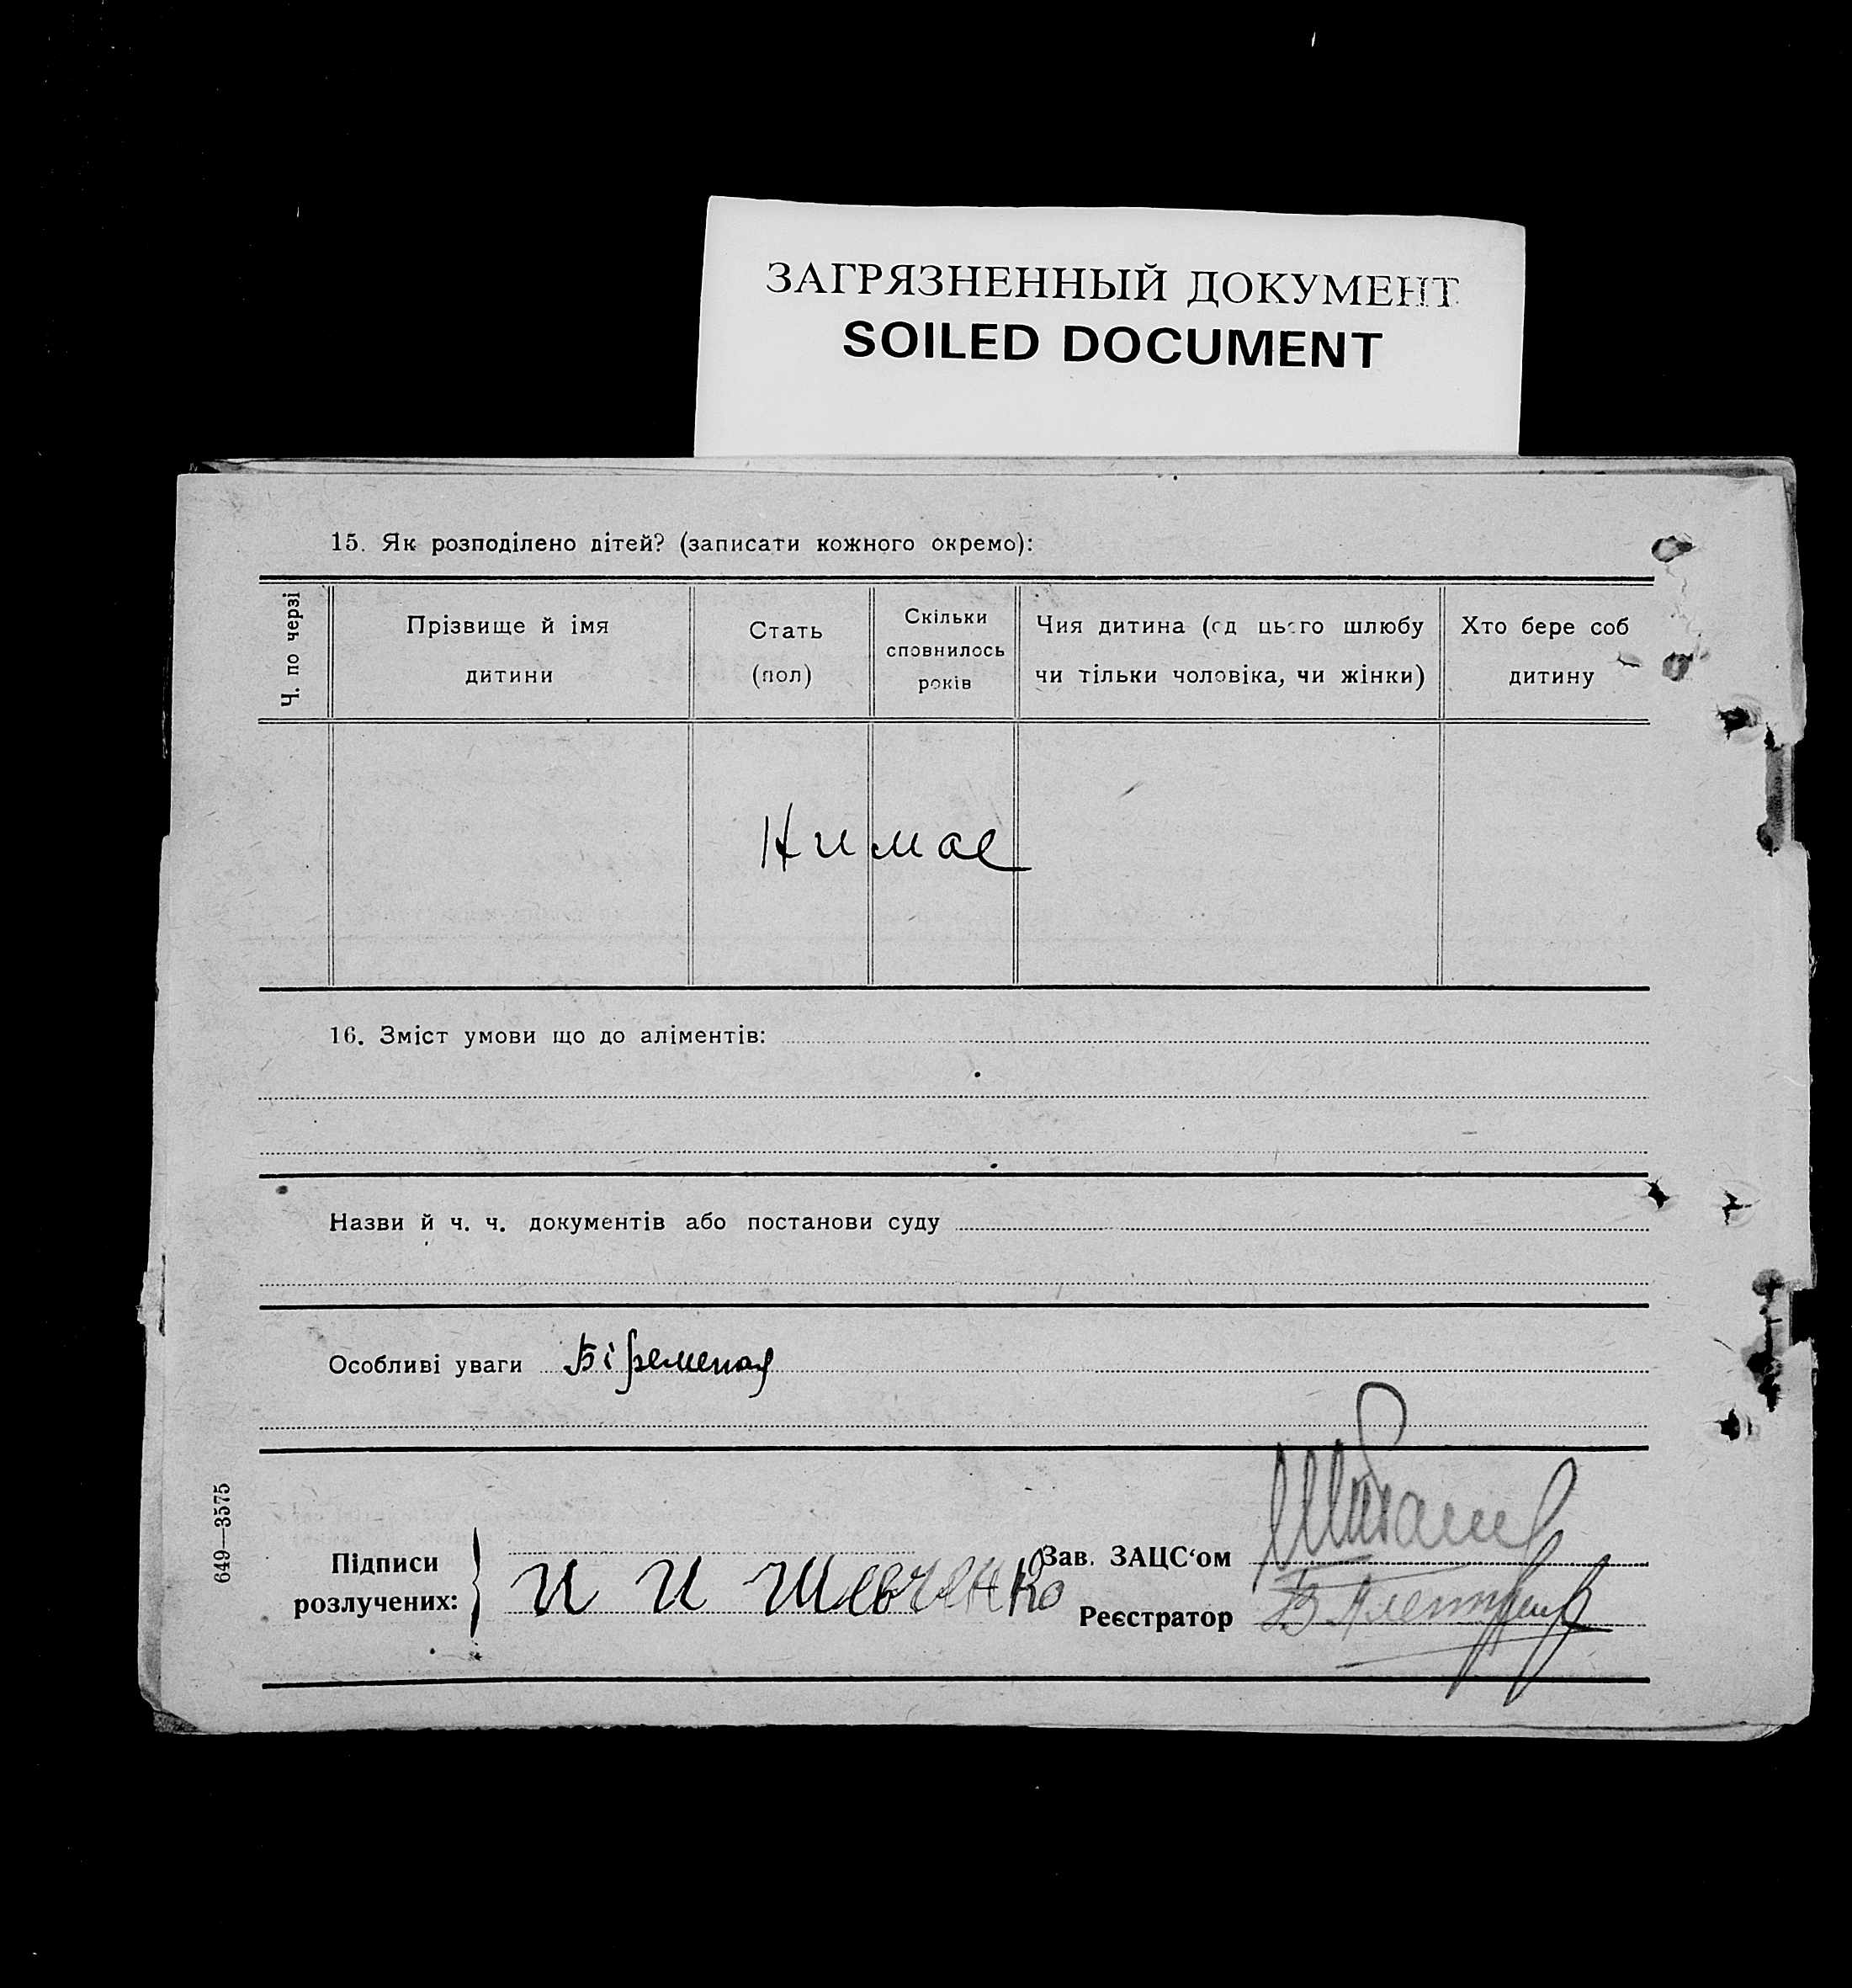 ЗАГРЯЗНЕННЫЙ ДОКУМЕНТ
SOILED DOCUMENT
15. Як розподілено дітей? (записати кожного окремо):
Ч. по черзі
Прізвище й імя
дитини
Стать
(пол)
Скільки
сповнилось
років
Чия дитина (од цього шлюбу
чи тільки чоловіка, чи жінки)
Хто бере соб
дитину
Нимае
16. Зміст умови що до аліментів:
Назви й ч. ч. документів або постанови суду
Особливі уваги Біременая
649—3575
Підписи
розлучених:
И И Шевченко
Зав. ЗАЦС‘ом
Реєстратор